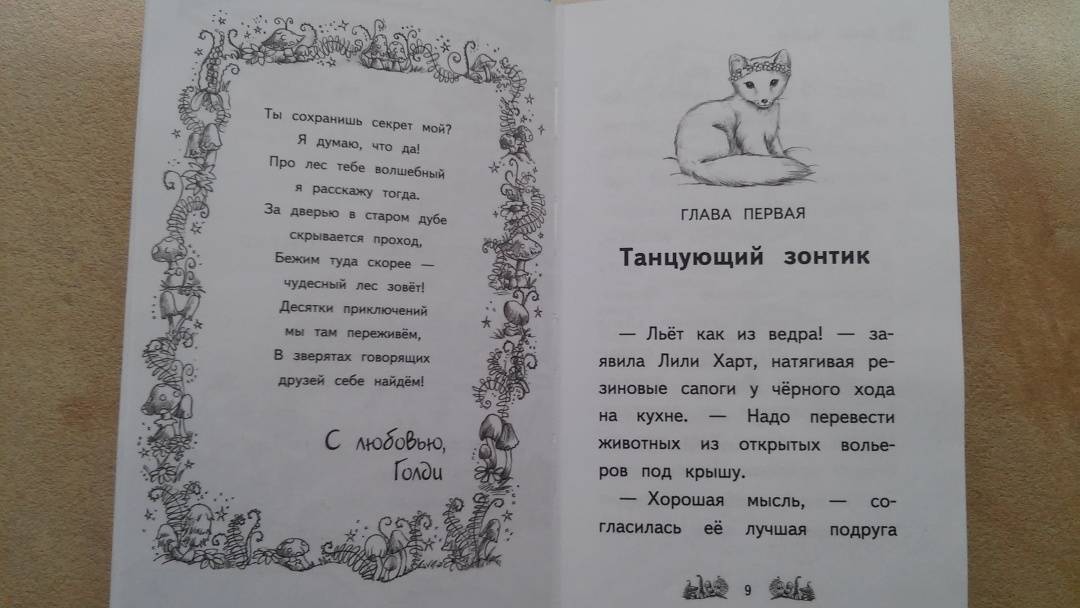 Ты сохранишь секрет мой?
Я думаю, что да!
Про лес тебе волшебный
я расскажу тогда.
За дверью в старом дубе
скрывается проход,
Бежим туда скорее —
чудесный лес зовёт!
Десятки приключений
мы там переживём,
В зверятах говорящих
друзей себе найдём!
С любовью,
Голди
ГЛАВА ПЕРВАЯ
Танцующий зонтик
— Льёт как из ведра! — за-
явила Лили Харт, натягивая ре-
зиновые сапоги у чёрного хода
на кухне. — Надо перевести
животных из открытых волье-
ров под крышу.
— Хорошая мысль, — со-
гласилась её лучшая подруга
9